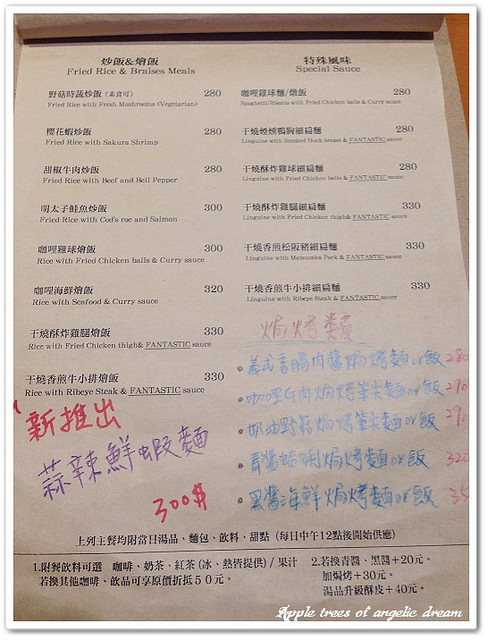 炒飯&燴飯
Fried Rice & Braises Meals
野菇時蔬炒飯 (素食可) 280
Fried Rice with Fresh Mushrooms (Vegetarian)
櫻花蝦炒飯 280
Fried Rice with Sakura Shrimp
甜椒牛肉炒飯 280
Fried Rice with Beef and Bell Pepper
明太子鮭魚炒飯 300
Fried Rice with Cod's roe and Salmon
咖哩雞球燴飯 300
Rice with Fried Chicken balls & Curry sauce
咖哩海鮮燴飯 320
Rice with Seafood & Curry sauce
干燒酥炸雞腿燴飯 330
Rice with Fried Chicken thigh& FANTASTIC sauce
干燒香煎牛小排燴飯 330
Rice with Ribeye Steak & FANTASTIC sauce
新推出
蒜辣鮮蝦麵
300$
特殊風味
Special Sauce
咖哩雞球麵/燴飯 280
Spaghetti/Risotto with Fried Chicken balls & Curry sauce
干燒煙燻鴨胸細扁麵 280
Linguine with Smoked Duck breast & FANTASTIC sauce
干燒酥炸雞球細扁麵 280
Linguine with Fried Chicken balls & FANTASTIC sauce
干燒酥炸雞腿細扁麵 330
Linguine with Fried Chicken thigh& FANTASTIC sauce
干燒香煎松阪豬細扁麵 330
Linguine with Matsuzaka Pork & FANTASTIC sauce
干燒香煎牛小排細扁麵 330
Linguine with Ribeye Steak & FANTASTIC sauce
焗烤類
義式香腸肉醬焗烤麵or飯 280
咖哩G肉焗烤筆尖麵or飯 290
奶油野菇焗烤筆尖麵or飯 290
青醬蛤蜊焗烤麵or飯 320
黑醬海鮮焗烤麵or飯 35
上列主餐均附當日湯品、麵包、飲料、甜點 (每日中午12點後開始供應)
1.附餐飲料可選 咖啡、奶茶、紅茶 (冰、熱皆提供) / 果汁
若換其他咖啡、飲品可享原價折抵50元。
2.若換青醬、黑醬+20元。
加焗烤+30元。
湯品升級酥皮+40元。
Apple trees of angelic dream